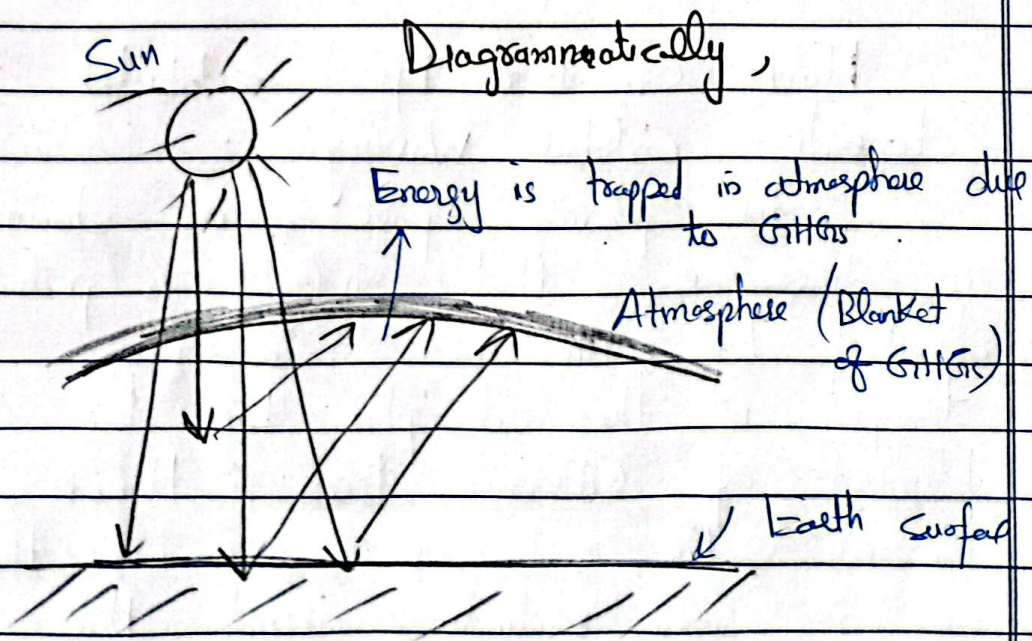 Sun
Diagrammatically,
Energy is trapped in atmosphere due
to GHGs.
Atmosphere (Blanket
of GHGs)
Earth surface